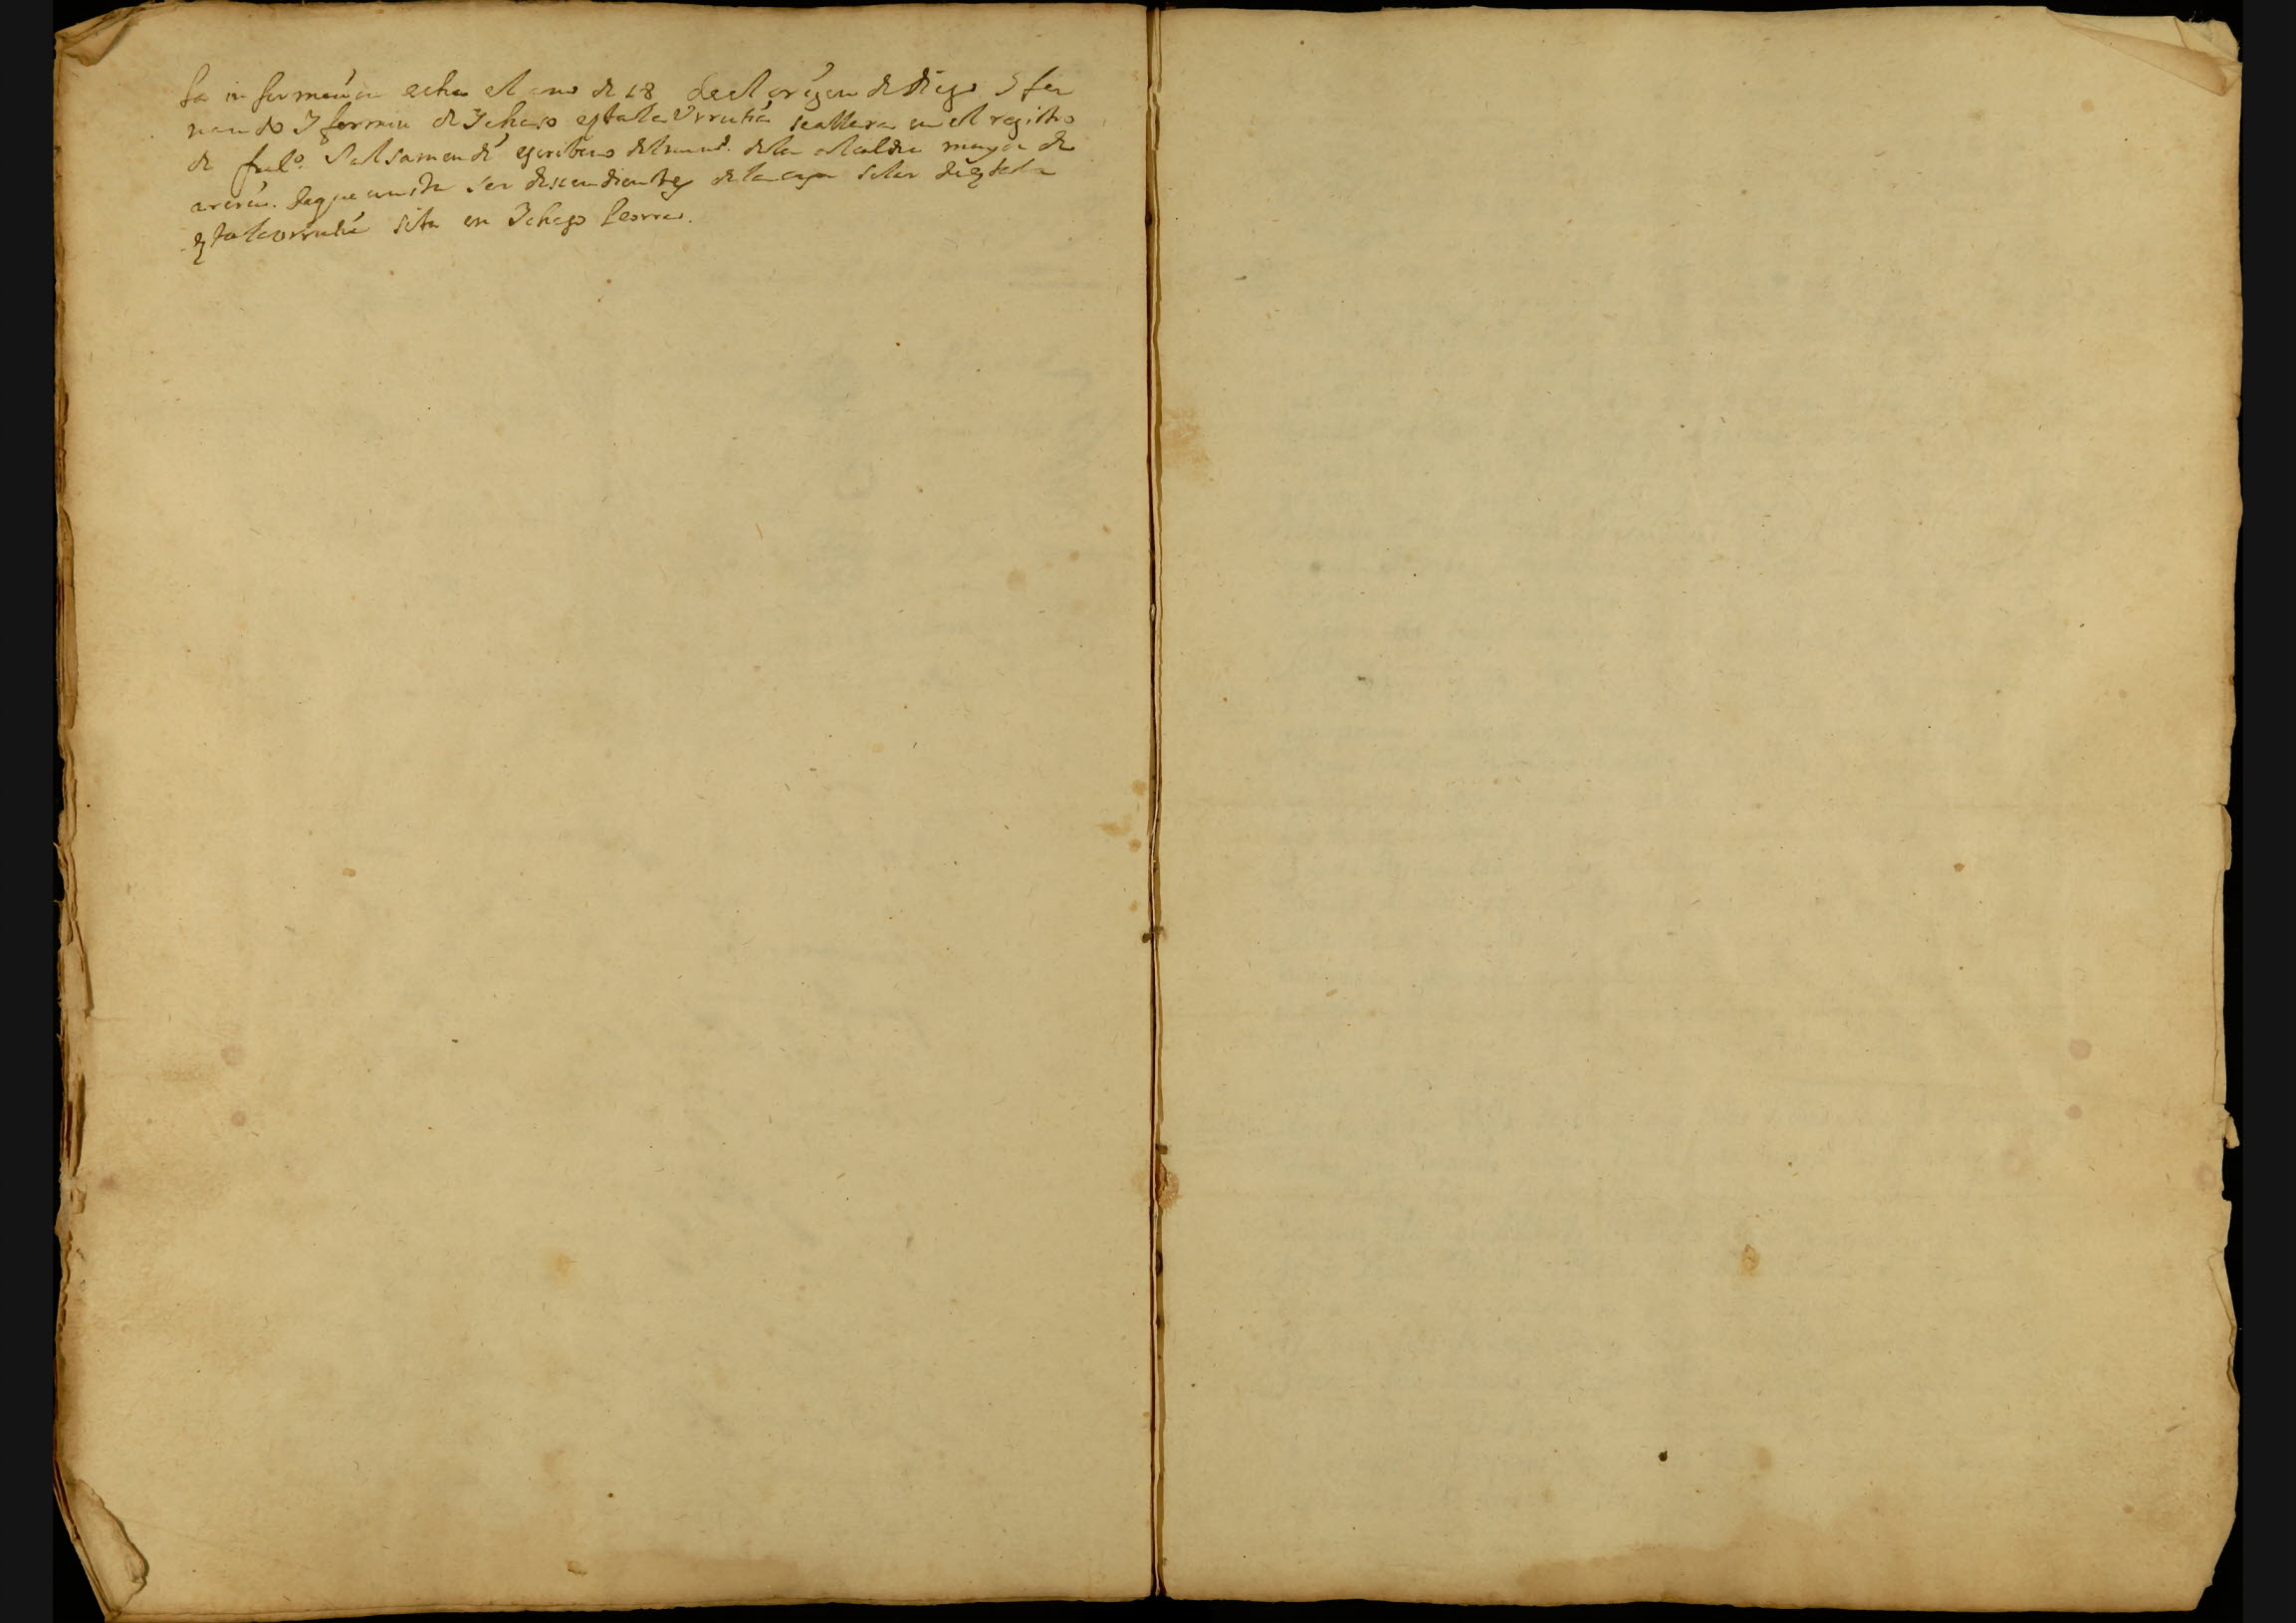 La informacion echa el ano de 28 de el origen de Diego Y fer
nando Y fermin de Ichaso estala Urrutia se allara en el registro
de Salsamendi escribano de la alcaldia mayor de
areria. de que consta ser descendientes de la casa solar de estala
estala urrutia sita en Ichaso